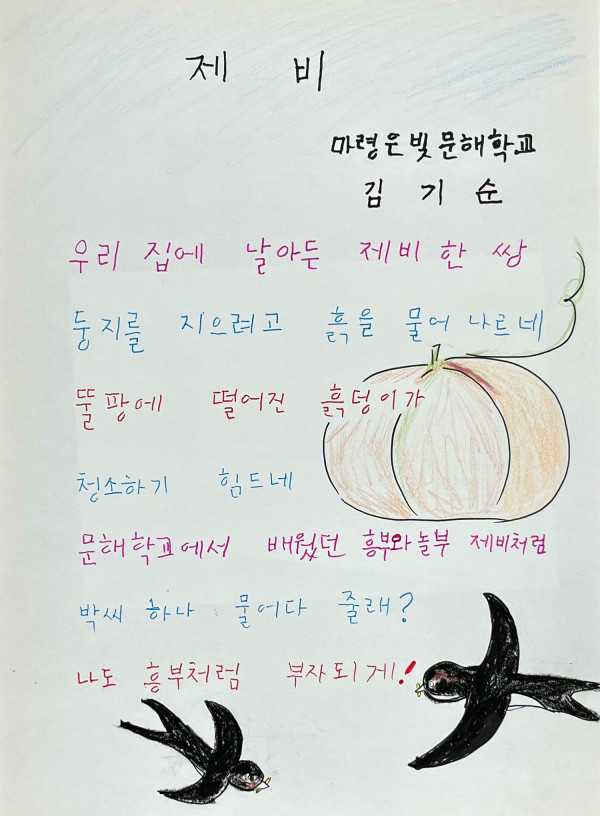 제 비
마령은빛문해학교
김 기 순
우리 집에 날아든 제비 한 쌍
둥지를 지으려고 흙을 물어 나르네
뚤팡에 떨어진 흙덩이가
청소하기 힘드네
문해학교에서 배웠던 흥부와 놀부 제비처럼
박씨 하나 물어다 줄래?
나도 흥부처럼 부자되게!